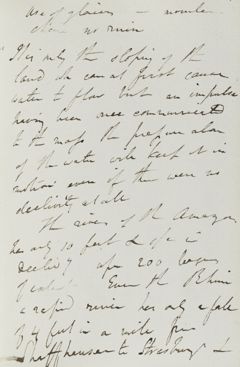 use of glaciers —
there no rain
It is only the sloping of the
land wh can at first cause
water to flow but an impulse
having been once communicated
to the mass the pressure alone
of the water will keep it in
motion even if there were no
declivity at all
The river of the Amazon
has only 10 feet &
declivity upon 200 leagues
of extent Even the Rhine
a rapid river has only a fall
of 4 feet in a mile from
Shaffhausen to Strasburg &